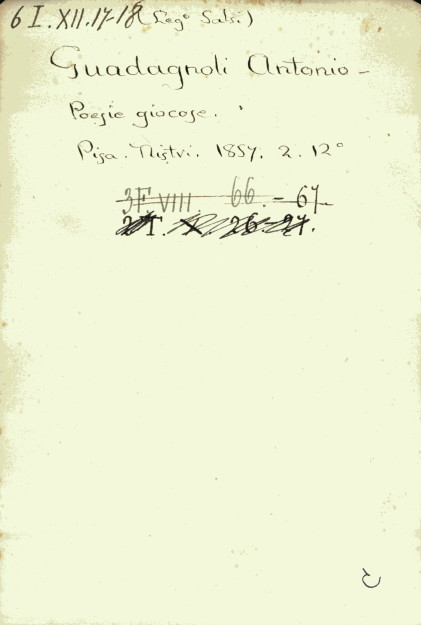 6 I. XII. 17-18 (Lego Salv.)
Guadagnoli Antonio -
Poesie giocose.
Pisa. Nistri. 1857. 2. 12°
3 F VIII 66. - 67
2 I. X 26-27.